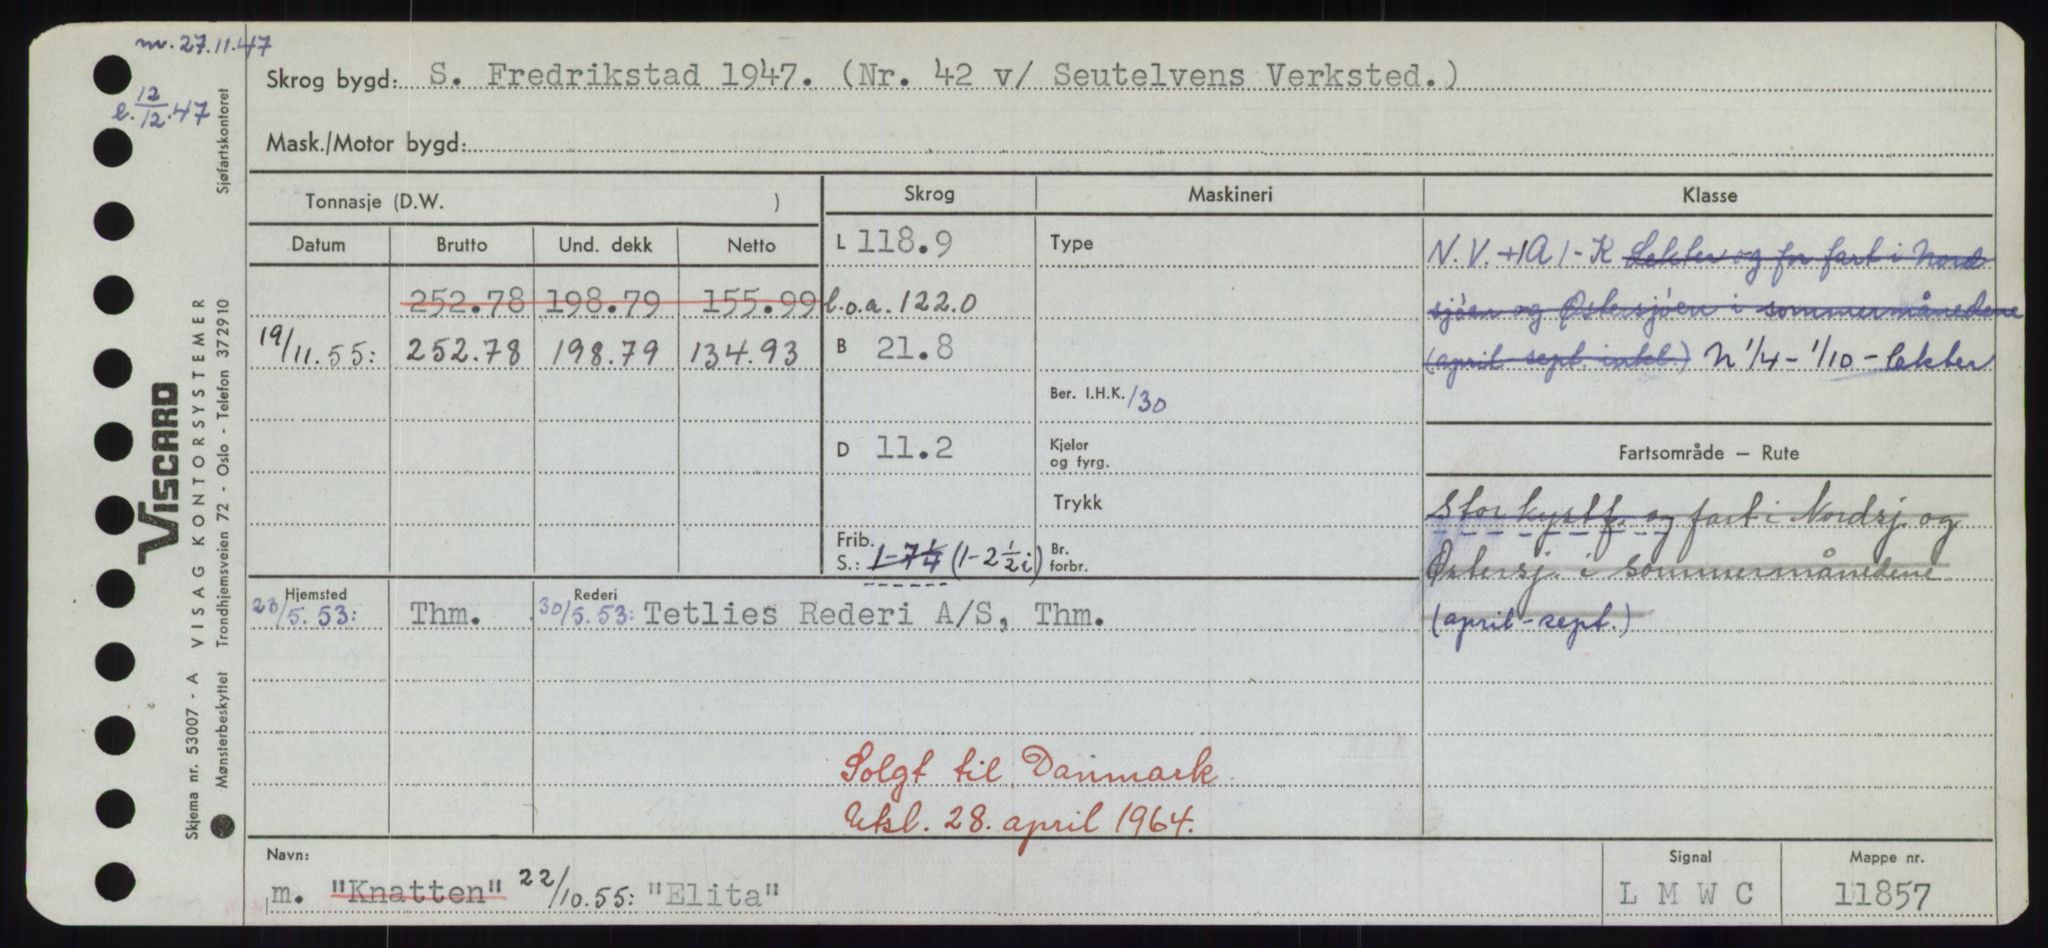 m. 27.11.47
l. 12/12.47
Skrog bygd: S. Fredrikstad 1947. (Nr. 42 v/ Seutelvens Verksted.)
Mask./Motor bygd:
Tonnasje (D.W. )
Skrog
Maskineri
Klasse
Datum
Brutto
Und. dekk
Netto
252.78 198.79 155.99
19/11.55: 252.78 198.79 134.93
L 118.9
l.o.a. 122.0
B 21.8
D 11.2
Frib.
S.: 1-7 1/4 (1-2 1/2 i)
Type
Ber. I.H.K. 130
Kjeler
og fyrg.
Trykk
Br.
forbr.
N.V. +1A1-K Lekter og for fart i Nord
sjøen og Østersjøen i sommermånedene
(april sept. inkl.) N 1/4 - 1/10 - lekter
Fartsområde — Rute
Stor kystf. og fart i Nordsj. og
Østersj. i sommermånedene
(april-sept.)
Hjemsted
23/5.53: Thm.
Rederi
30/5.53: Tetlies Rederi A/S, Thm.
Solgt til Danmark
Utsl. 28. april 1964.
Navn:
m. "Knatten" 22/10.55: "Elita"
Signal
L M W C
Mappe nr.
11857
VISCARD
Skjema nr. 53007 - A VISAG KONTORSYSTEMER
Mønsterbeskyttet Trondhjemsveien 72 - Oslo - Telefon 372910 Sjøfartskontoret